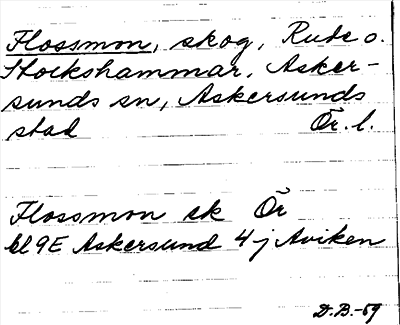 Flossmon, skog, Rude o.
Stockshammar, Asker-
sunds sn, Askersunds
stad Ör. l.
Flossmon ek Ör
bl 9E Askersund 4 j Aviken
D.B.-59